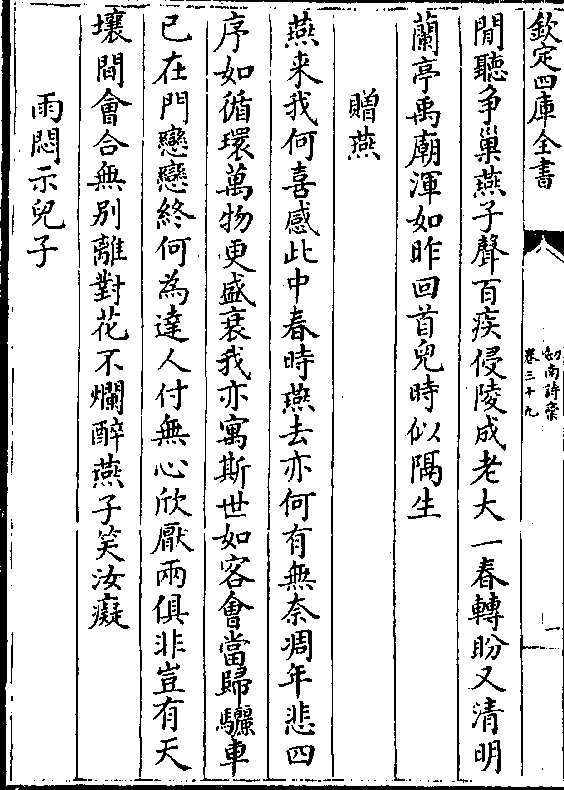 欽定四庫全書
劍南詩稾
卷三十九
閒聽爭巢燕子聲百疾侵陵成老大一春轉盼又清明
蘭亭禹廟渾如昨回首兒時似隔生
贈燕
燕来我何喜感此中春時燕去亦何有無奈凋年悲四
序如循環萬物更盛衰我亦寓斯世如客會當歸驪車
已在門戀戀終何為達人付無心欣厭兩俱非豈有天
壤間會合無別離對花不爛醉燕子笑汝癡
雨悶示兒子